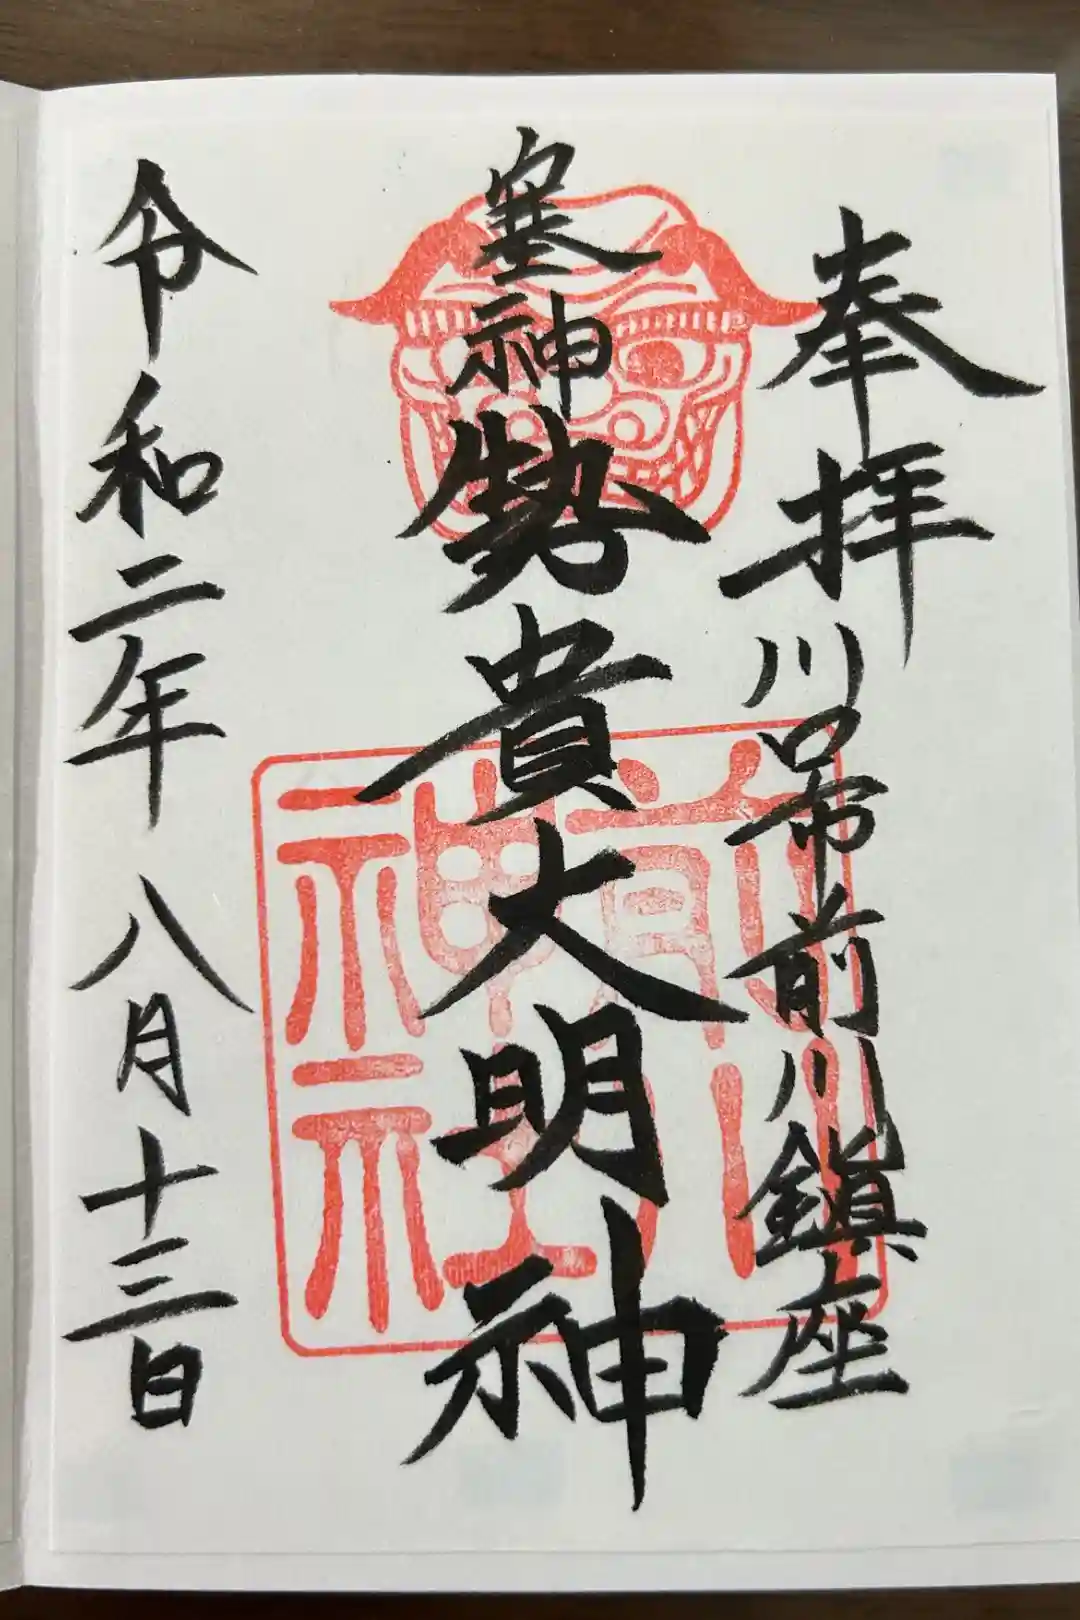 奉拝 川口市前川鎮座
塞神 勢貴大明神
前川神社
令和二年 八月十三日